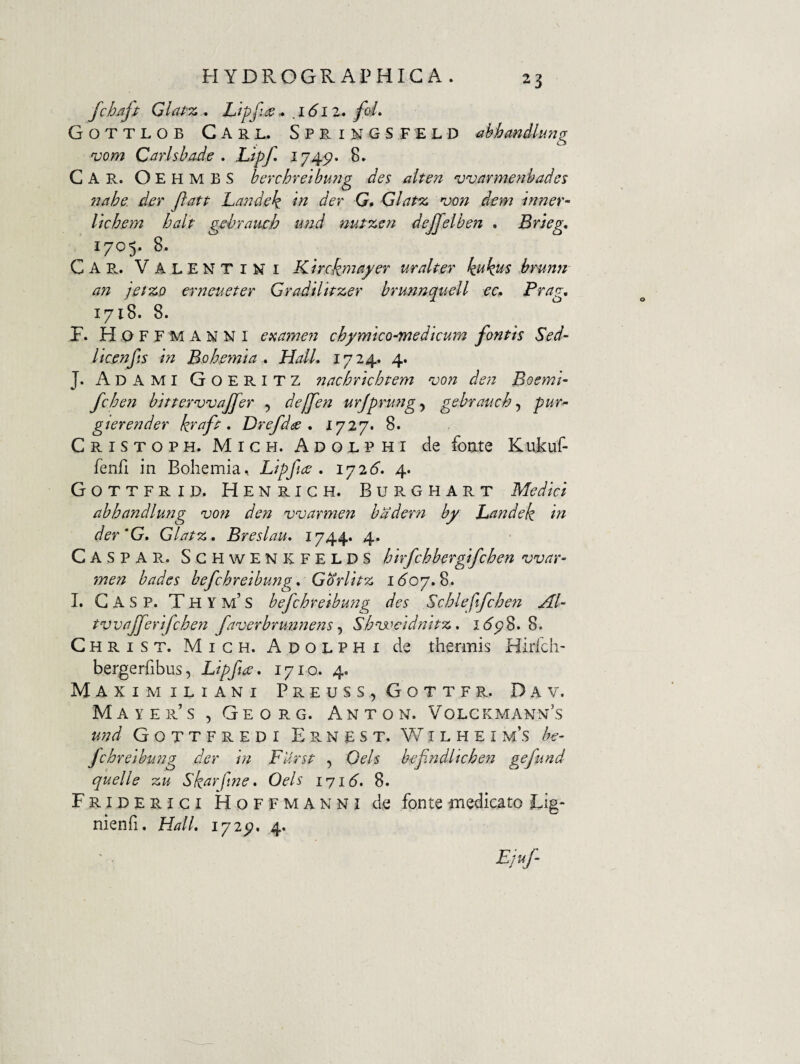 HYDROGRAPHICA. 23
ſchaft Glatz. Lipſiæ. 1612. fol.
GOTTLOB CARL. SPRINGSFELD abhandlung
vom Carlsbade. Lipſ. 1749. 8.
CAR. OEHMBS berchreibung des alten vvarmenbades
nahe der ſtatt Landek in der G. Glatz von dem inner-
lichem halt gebrauch und nutzen deſſelben. Brieg.
1705. 8.
CAR. VALENTINI Kirckmayer uralter kukus brunn
an jetzo erneueter Gradilitzer brunnquell ec. Prag.
1718. 8.
F. HOFFMANNI examen chymico-medicum fontis Sed-
licenſis in Bohemia. Hall. 1724. 4.
J. ADAMI GOERITZ nachrichtem von den Boemi-
ſchen bittervvaſſer, deſſen urſprung, gebrauch, pur-
gierender kraft. Dreſdæ. 1727. 8.
CRISTOPH. MICH. ADOLPHI de fonte Kukuſ-
ſenſi in Bohemia, Lipſiæ. 1726. 4.
GOTTFRID. HENRICH. BURGHART Medici
abhandlung von den vvarmen bädern by Landek in
der G. Glatz. Breslau. 1744. 4.
CASPAR. SCHWENKFELDS hirſchbergiſchen vvar-
men bades beſchreibung. Görlitz 1607. 8.
I. CASP. THYM'S beſchreibung des Schleſiſchen Al-
tvvaſſeriſchen ſaverbrunnens, Shweidnitz. 1698. 8.
CHRIST. MICH. ADOLPHI de thermis Hirſch-
bergerſibus, Lipſiæ. 1710. 4.
MAXIMILIANI PREUSS, GOTTFR. DAV.
MAYER'S, GEORG. ANTON. VOLCKMANN'S
und GOTTFREDI ERNEST. WILHEIM'S be-
ſchreibung der in Fürst, Oels befindlichen geſund
quelle zu Skarſine. Oels 1716. 8.
FRIDERICI HOFFMANNI de fonte medicato Lig-
nienſi. Hall. 1729. 4.
Ejuſ-